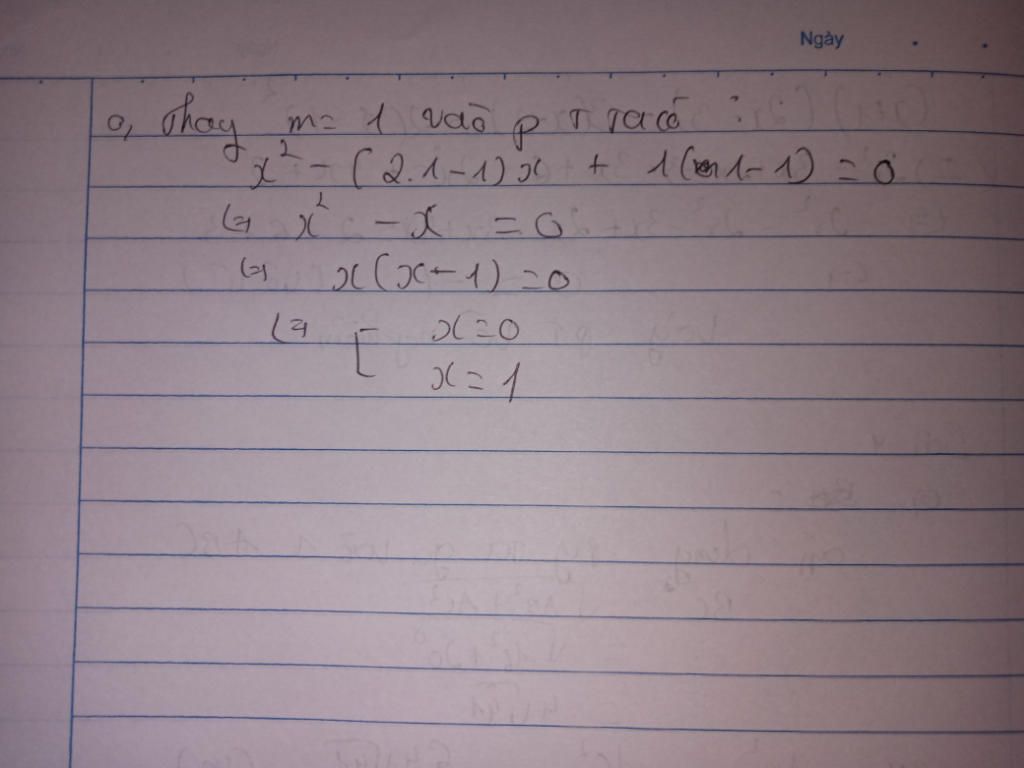 Ngày
a, Thay m = 1 vào pT ta có :
x² - (2.1-1)x + 1(1-1) = 0
⇔ x² - x = 0
⇔ x(x-1) = 0
⇔ [ x = 0
x = 1